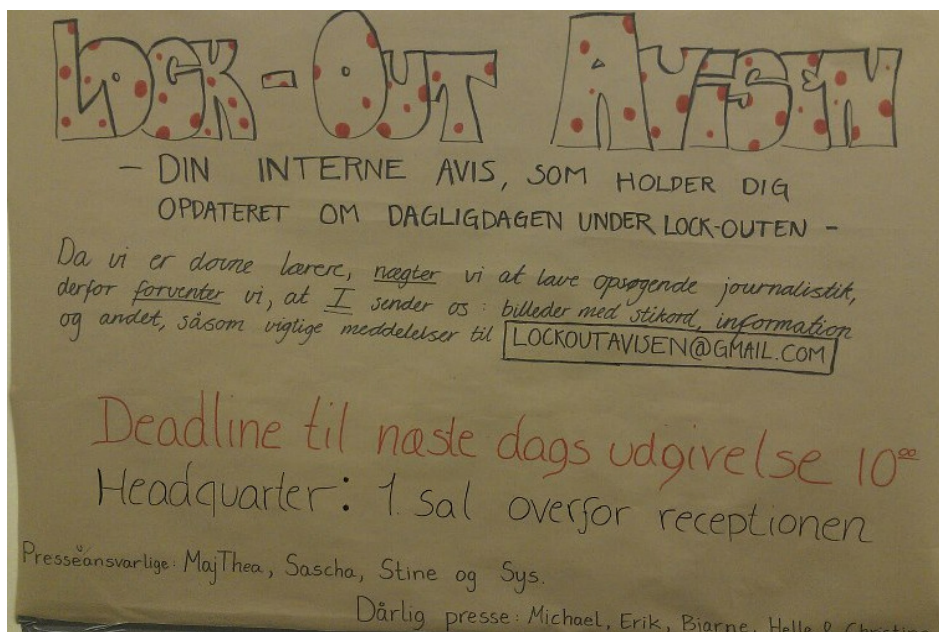 LOCK-OUT AVISEN
- DIN INTERNE AVIS, SOM HOLDER DIG
OPDATERET OM DAGLIGDAGEN UNDER LOCK-OUTEN -
Da vi er dovne lærere, nægter vi at lave opsøgende journalistik,
derfor forventer vi, at I sender os: billeder med stikord, information
og andet, såsom vigtige meddelelser til LOCKOUTAVISEN@GMAIL.COM
Deadline til næste dags udgivelse 10⁰⁰
Headquarter: 1. sal overfor receptionen
Presseansvarlige: MajThea, Sascha, Stine og Sys.
Dårlig presse: Michael, Erik, Bjarne, Helle &